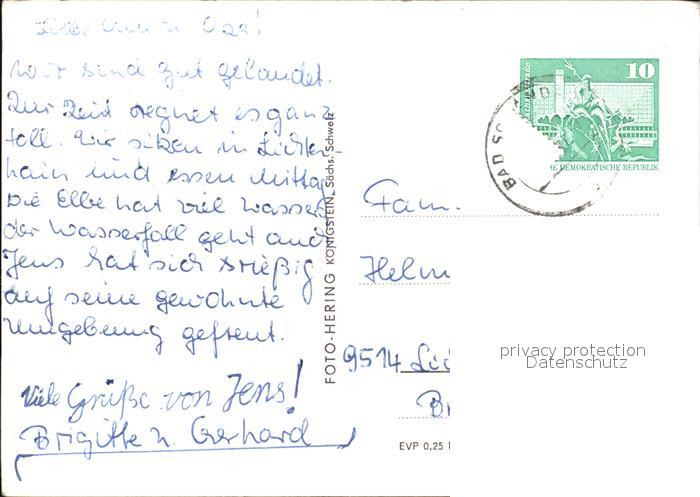 Liebe Oma u. Opa!
wir sind gut gelandet.
Zur Zeit regnet es ganz
toll. Wir sitzen in Lichten-
hain und essen Mittag
Die Elbe hat viel Wasser
der Wasserfall geht auch
Jens hat sich riesig
auf seine gewohnte
Umgebung gefreut.
Viele Grüße von Jens!
Brigitte u. Gerhard
FOTO-HERING KÖNIGSTEIN, Sächs. Schweiz
10
DEMOKRATISCHE REPUBLIK
BAD SC
Fam.
Helm
9514
EVP 0,25
privacy protection
Datenschutz